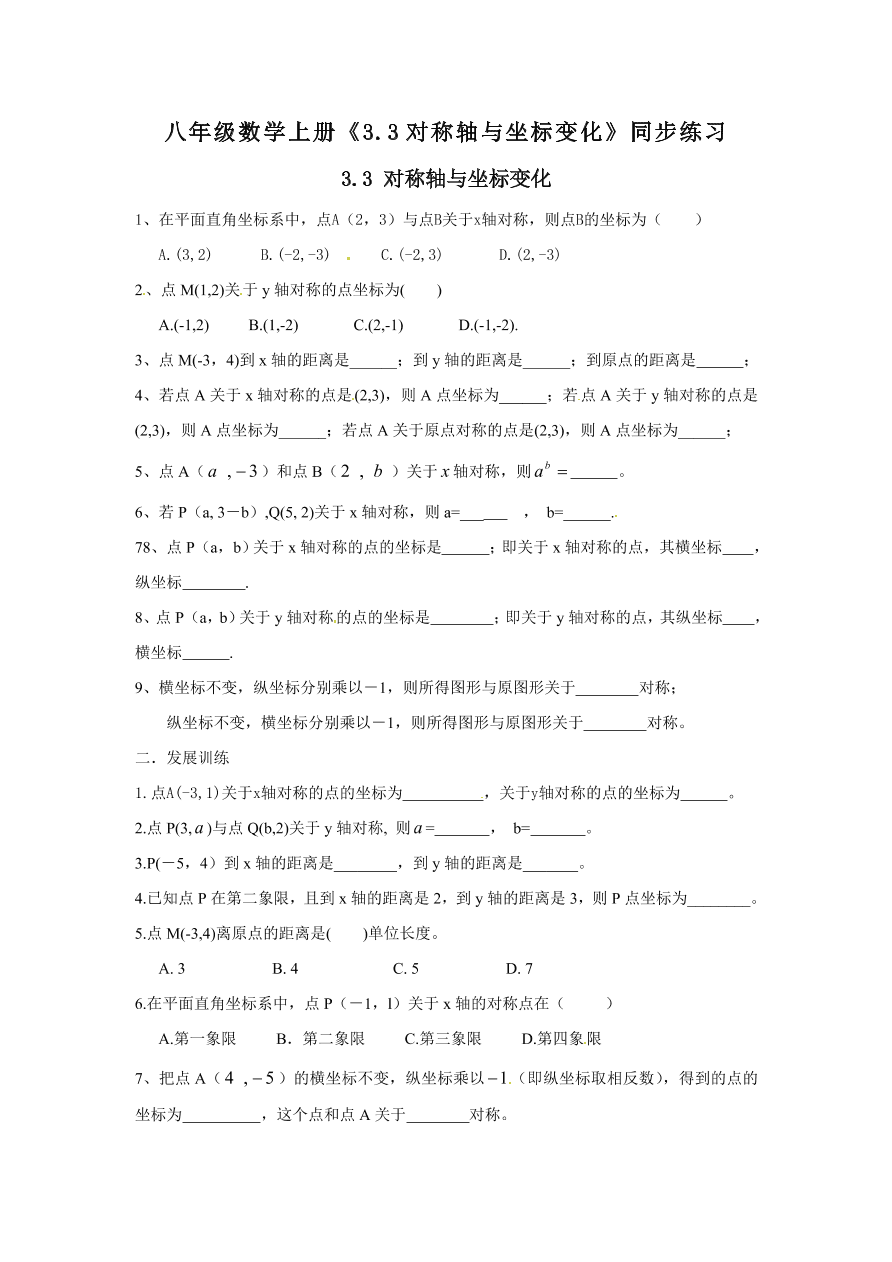 八年级数学上册《3.3 对称轴与坐标变化》同步练习
3.3 对称轴与坐标变化
1、在平面直角坐标系中，点A（2，3）与点B关于x轴对称，则点B的坐标为（　　）
A.(3,2)　　B.(-2,-3)　　C.(-2,3)　　D.(2,-3)
2、点 M(1,2)关于 y 轴对称的点坐标为(　　)
A.(-1,2)　　B.(1,-2)　　C.(2,-1)　　D.(-1,-2).
3、点 M(-3，4)到 x 轴的距离是______；到 y 轴的距离是______；到原点的距离是______；
4、若点 A 关于 x 轴对称的点是(2,3)，则 A 点坐标为______；若点 A 关于 y 轴对称的点是
(2,3)，则 A 点坐标为______；若点 A 关于原点对称的点是(2,3)，则 A 点坐标为______；
5、点 A（ a ，－3 ）和点 B（ 2 ， b ）关于 x 轴对称，则 a^b =______。
6、若 P（a, 3－b）,Q(5, 2)关于 x 轴对称，则 a=______　， b=______.
78、点 P（a，b）关于 x 轴对称的点的坐标是______；即关于 x 轴对称的点，其横坐标____，
纵坐标________.
8、点 P（a，b）关于 y 轴对称的点的坐标是________；即关于 y 轴对称的点，其纵坐标____，
横坐标______.
9、横坐标不变，纵坐标分别乘以－1，则所得图形与原图形关于________对称；
纵坐标不变，横坐标分别乘以－1，则所得图形与原图形关于________对称。
二．发展训练
1.点A(-3,1)关于x轴对称的点的坐标为__________，关于y轴对称的点的坐标为______。
2.点 P(3, a )与点 Q(b,2)关于 y 轴对称, 则 a =_______， b=_______。
3.P(－5，4）到 x 轴的距离是________，到 y 轴的距离是_______。
4.已知点 P 在第二象限，且到 x 轴的距离是 2，到 y 轴的距离是 3，则 P 点坐标为________。
5.点 M(-3,4)离原点的距离是(　　)单位长度。
A. 3　　B. 4　　C. 5　　D. 7
6.在平面直角坐标系中，点 P（－1，l）关于 x 轴的对称点在（　　）
A.第一象限　　B．第二象限　　C.第三象限　　D.第四象限
7、把点 A（ 4 ，－5 ）的横坐标不变，纵坐标乘以－1（即纵坐标取相反数），得到的点的
坐标为__________，这个点和点 A 关于________对称。